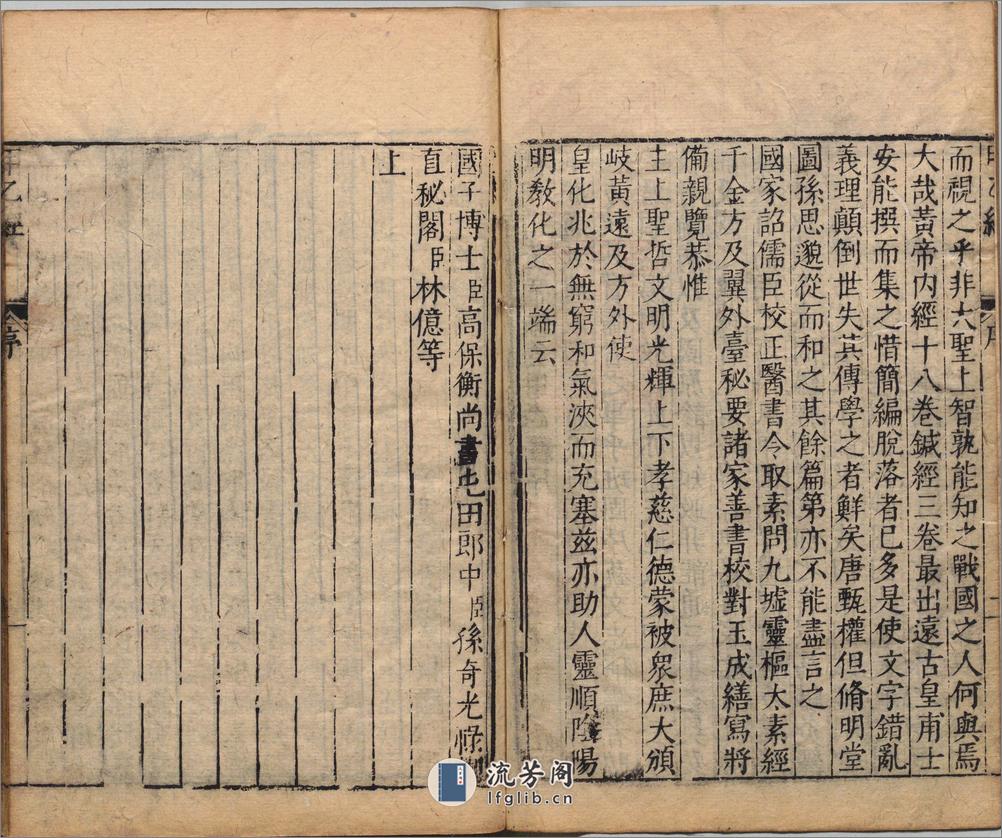 而視之乎非大聖上智孰能知之戰國之人何與焉
大哉黃帝内經十八卷鍼經三卷最出遠古皇甫士
安能撰而集之惜簡編脫落者已多是使文字錯亂
義理顛倒世失其傳學之者鮮矣唐甄權但脩明堂
圖孫思邈從而和之其餘篇第亦不能盡言之
國家詔儒臣校正醫書令取素問九墟靈樞太素經
千金方及翼外臺秘要諸家善書校對玉成繕寫將
備親覽恭惟
主上聖哲文明光輝上下孝慈仁德蒙被衆庶大頒
岐黃遠及方外使
皇化兆於無窮和氣浹而充塞兹亦助人靈順陰陽
明教化之一端云
國子博士臣高保衡尚書屯田郎中臣孫奇光祿
直秘閣臣林億等
上
序
流芳阁
lfglib.cn